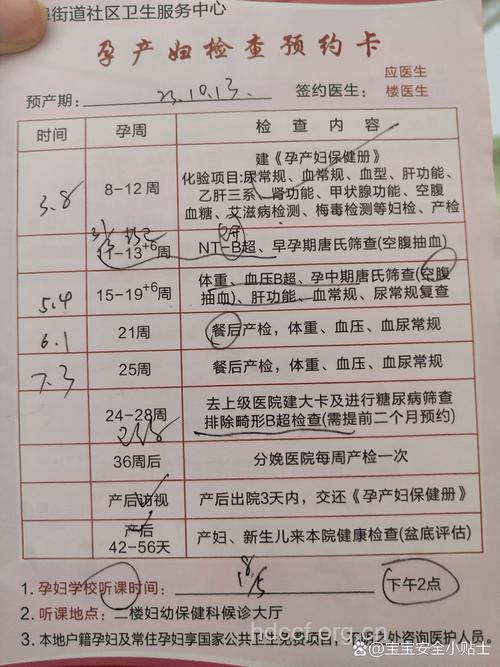 街道社区卫生服务中心
孕产妇检查预约卡
应医生
预产期： 23.10.13. 签约医生： 楼医生
时间 孕周 检查内容
建《孕产妇保健册》
3.8 8-12周 化验项目:尿常规、血常规、血型、肝功能、
乙肝三系、肾功能、甲状腺功能、空腹
血糖、艾滋病检测、梅毒检测等妇检、产检
11-13+6周 NT-B超、早孕期唐氏筛查(空腹抽血)
5.4 15-19+6周 体重、血压B超、孕中期唐氏筛查(空腹
抽血)、肝功能、血常规、尿常规复查
6.1 21周 餐后产检，体重、血压、血尿常规
7.3 25周 餐后产检，体重、血压、血尿常规
24-28周 去上级医院建大卡及进行糖尿病筛查
排除畸形B超检查(需提前二个月预约)
36周后 分娩医院每周产检一次
产后访视 产后出院3天内，交还《孕产妇保健册》
产后
42-56天 产妇、新生儿来本院健康检查(盆底评估)
1. 孕妇学校听课时间： 18/5 下午2点
2. 听课地点：二楼妇幼保健科候诊大厅
3. 本地户籍孕妇及常住孕妇享国家公共卫生免费项目，不明之处咨询医护人员。
头条 @宝宝安全小贴士